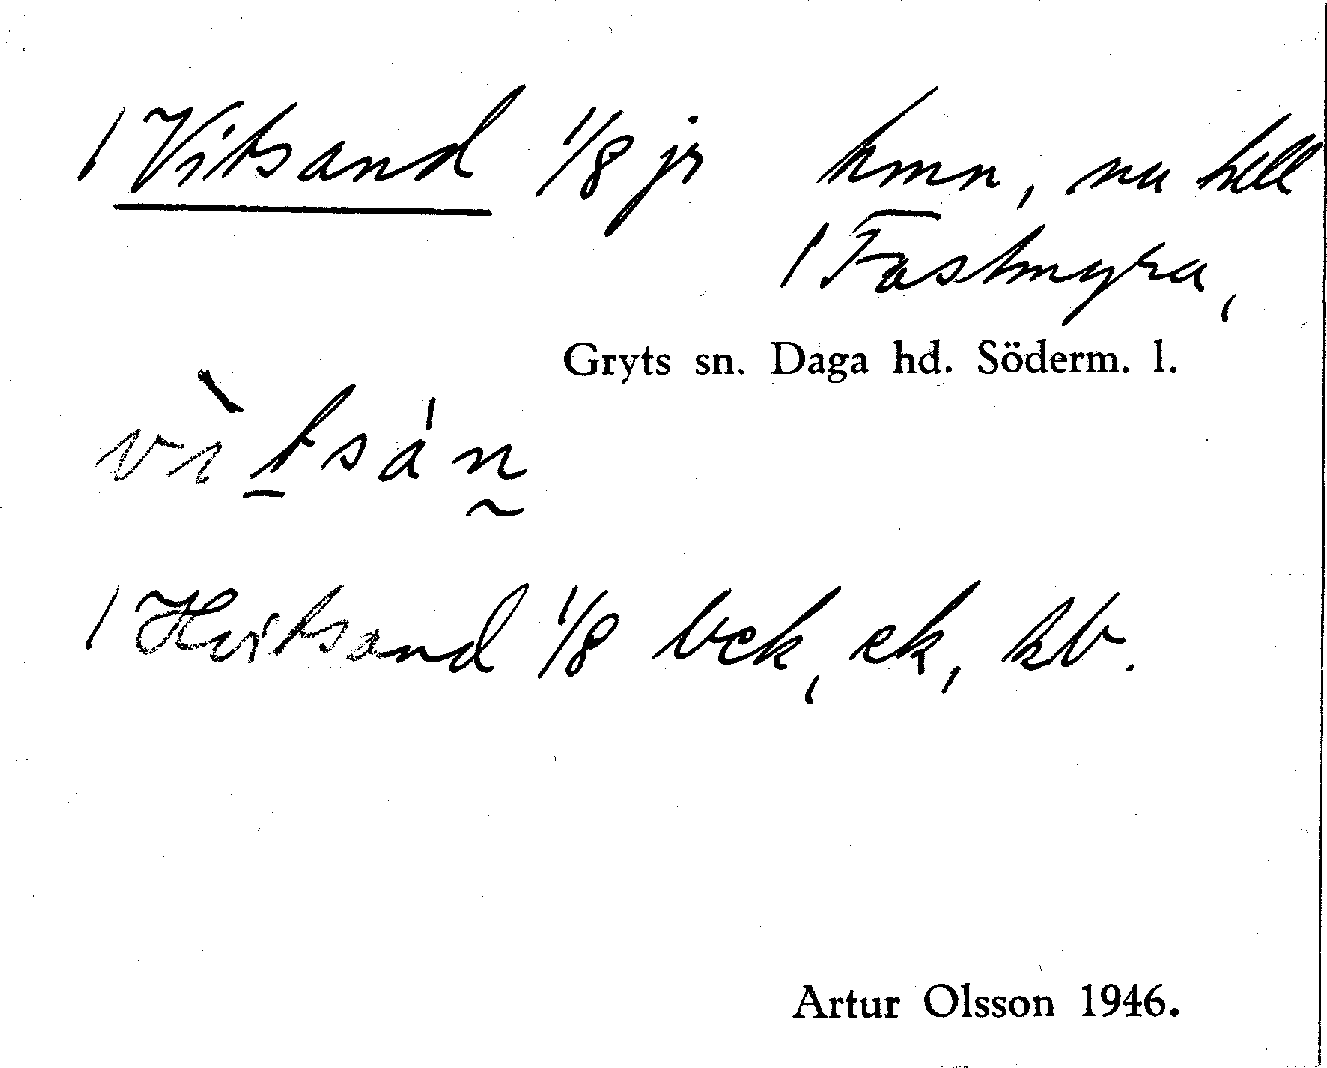 / Vitsand 1/8 jr hmn, nu hell
/ Fastmyra,
Gryts sn. Daga hd. Söderm. l.
vìtsán
/ Hvitsand 1/8 bck, ek, kb.
Artur Olsson 1946.